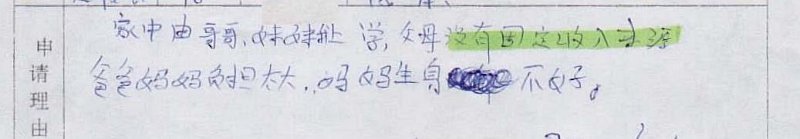 家中由哥哥、妹妹上学,父母没有固定收入来源
爸爸妈妈负担太大,妈妈生身不好。
申请理由